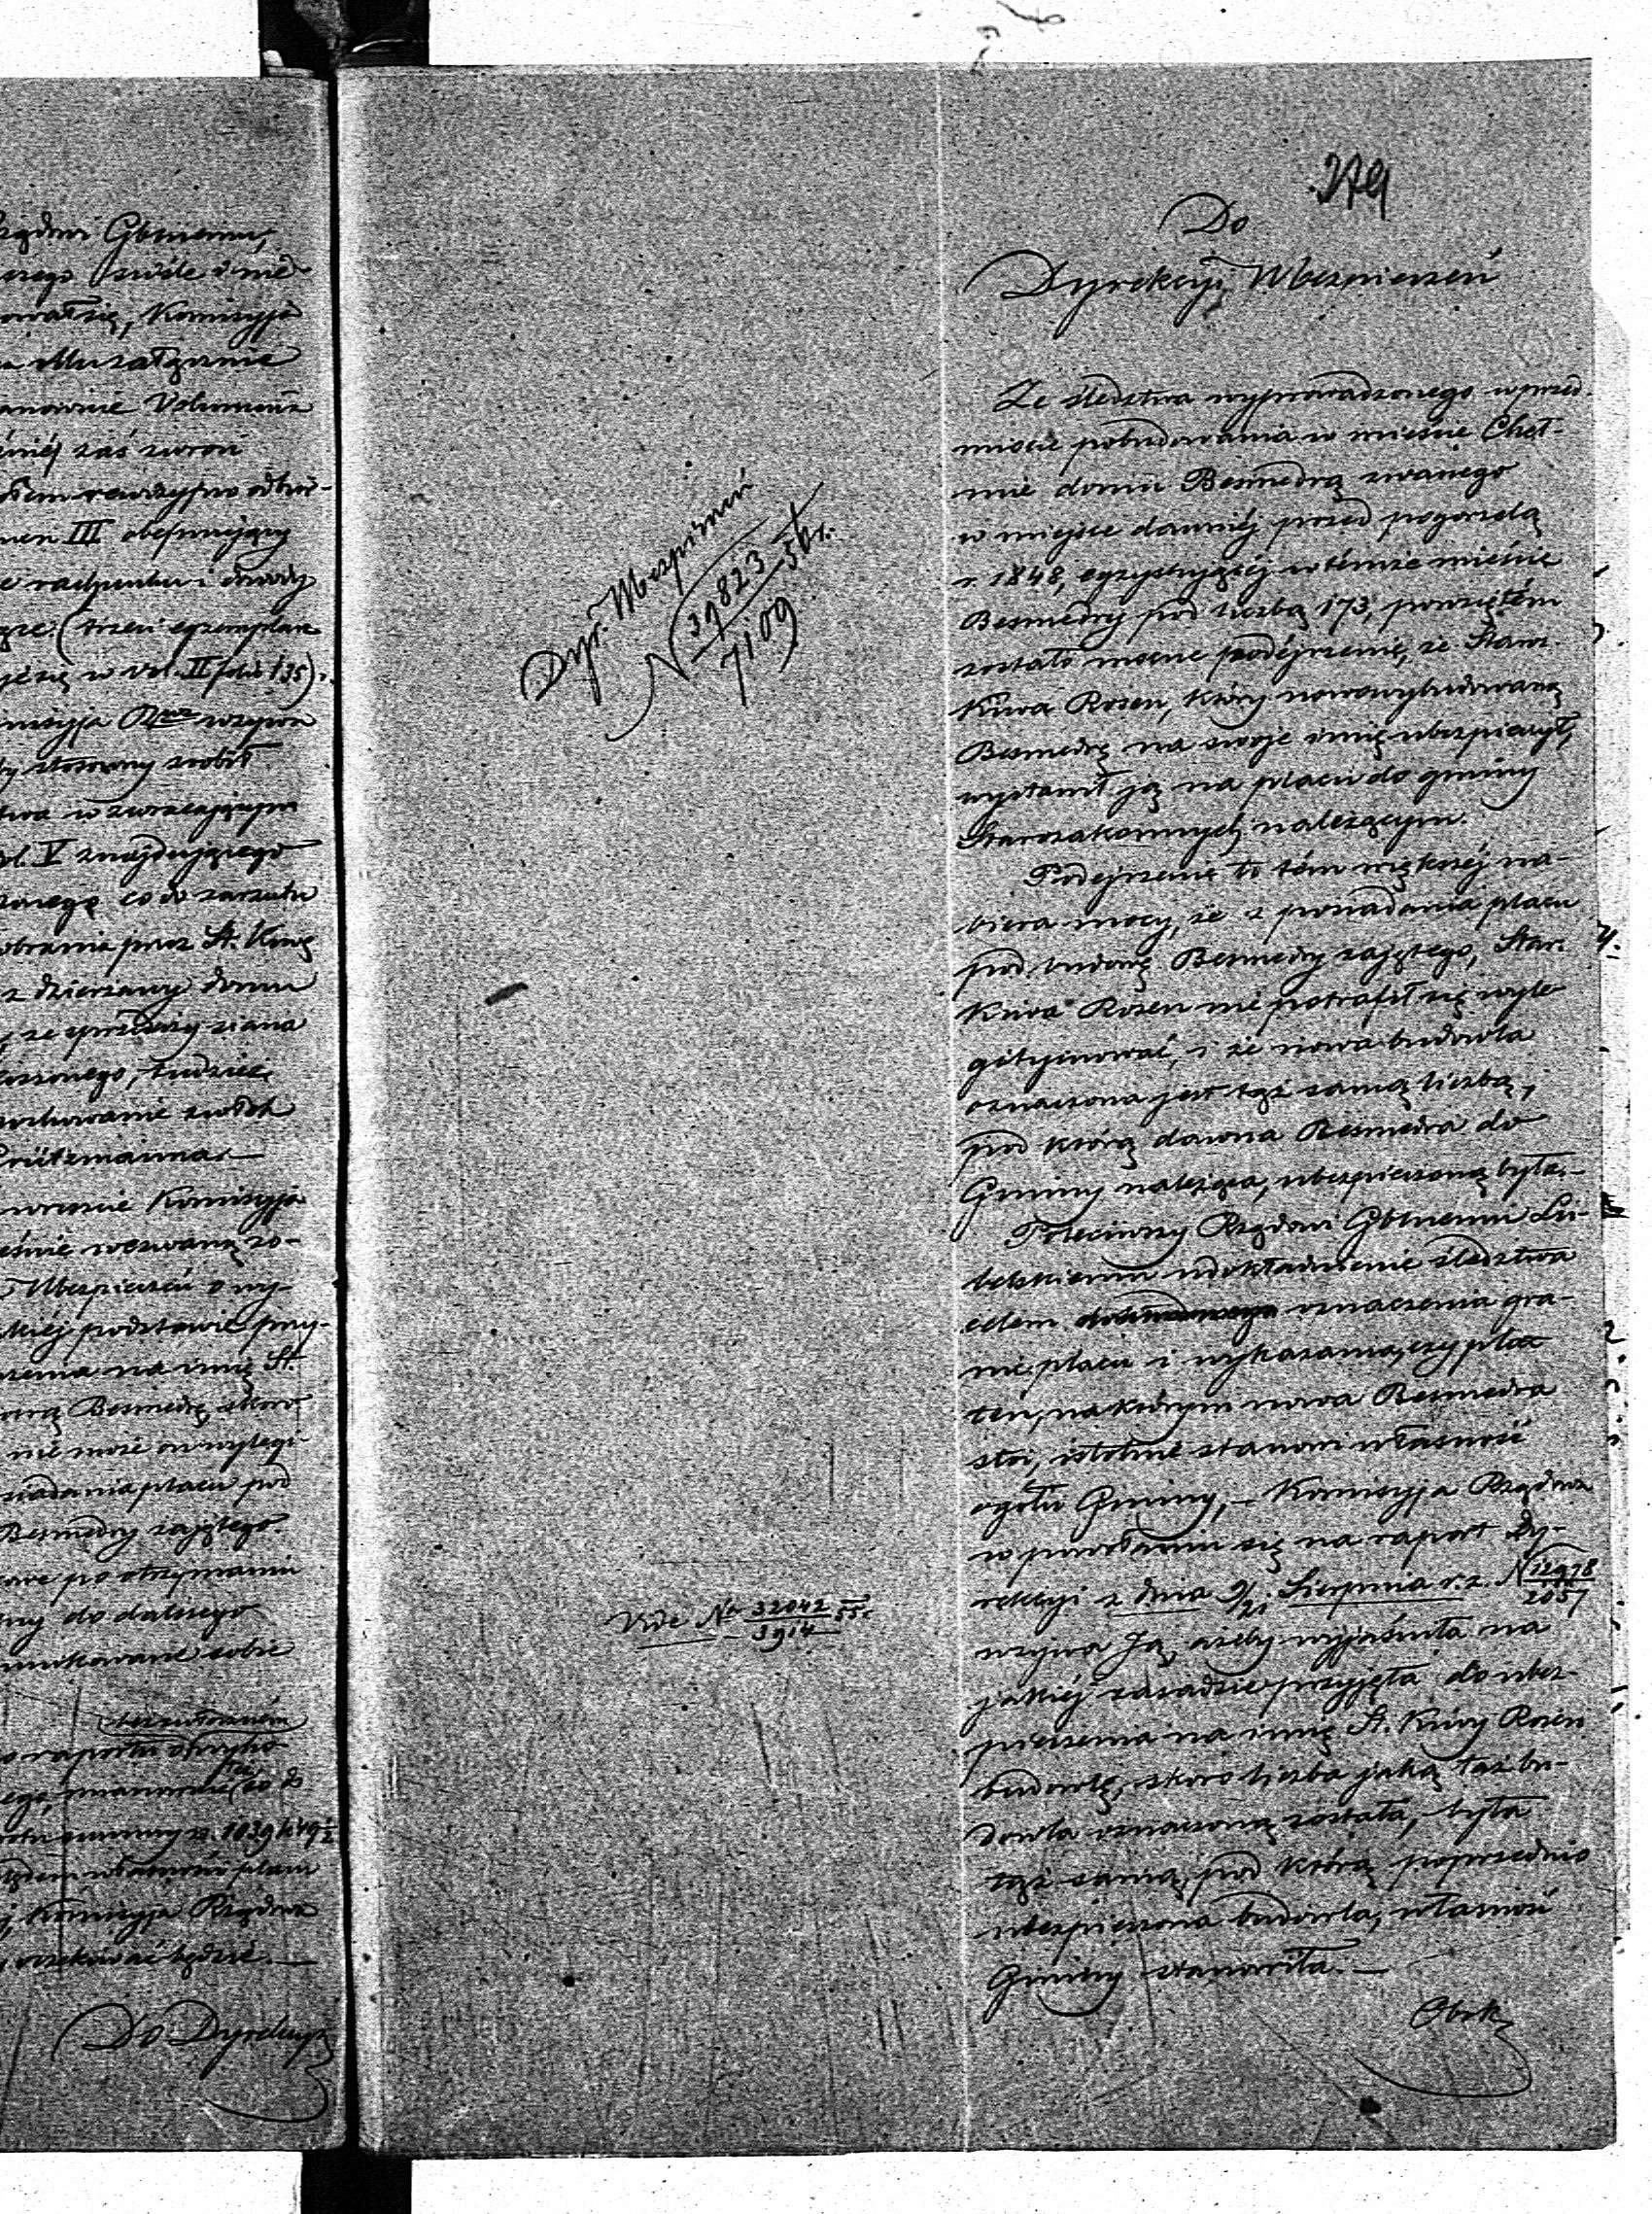 ządowi Gbnemu,
owałsię, Komisyja
Volumina
zaś zwroci
men III obejmujący
e rachunku i dowody
(trzeci egzemplarz
je się w Vol. II folio 135).
misyja Rzwa wzywa
stosowny zrobił
w zwracającym
ol. V znajdującego
co do zarzutu
obrania przez St. Kiwę
z dzierżawy domu
, ze sprzedaży siana
tudzież
pochowanie zwłok
wreszcie Komisyja
wezwaną zo-
Ubezpieczeń o wy-
kiéj podstawie przy-
na imię St.
Besmedrę, skoro
nie może on wylegi-
siadania placu pod
Besmedry zajętego.
po otrzymaniu
do dalszego
munikowane sobie
o raportu
ego, mianowicie co do
summy rs. 1039 k 49 1/2
własności placu
Komisyja Rządowa
oczekiwać będzie.—
Do Dyrekcyi
Dyr. Ubezpieczeń
N 39823/7109 56 r.
Vide Nr 32042/3914 55 r.
279
Do
Dyrekcyi Ubezpieczeń
Ze śledztwa wyprowadzonego w przed-
miocie pobudowania w mieście Cheł-
mie domu Besmedrą zwanego
w miejsce dawniéj przed pogorzelą
r. 1848, egzystującéj w témże mieście
Besmedry pod liczbą 173, powziętém
zostało mocne podéjrzenie, że Staroz.
Kiwa Rozen, który nowowybudowaną
Besmedrę na swoje imię ubezpieczył,
wystawił ją na placu do gminy
Starozakonnych należącym.
Podejrzenie to tém większéj na-
biera mocy, że z posiadania placu
pod budowę Besmedry zajętego, Star.
Kiwa Rozen nie potrafił się wyle-
gitymować, i że nowa budowla
oznaczona jest tąż samą liczbą,
pod którą dawna Besmedra do
Gminy należąca, ubezpieczoną była.—
Poleciwszy Rządowi Gbnemu Lu-
belskiemu udokładnienie śledztwa
celem oznaczenia gra-
nic placu i wykazania, czy plac
ten, na którym nowa Besmedra
stoi, istotnie stanowi własność
ogółu Gminy,— Komisyja Rządowa
w powołaniu się na raport Dy-
rekcyi z dnia 9/21 Sierpnia r. z. N 12978/2057
wzywa Ją, ażeby wyjaśniła na
jakiéj zasadzie przyjęła do ubez-
pieczenia na imię St. Kiwy Rozen
budowlę, skoro liczba jaką taż bu-
dowla oznaczoną została, była
tąż samą, pod którą poprzednio
ubezpieczona budowla, własność
Gminy stanowiła.—